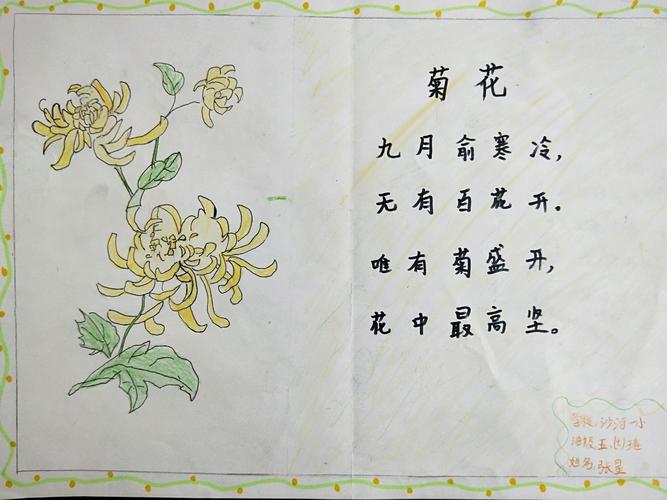 菊花
九月俞寒冷,
无有百花开。
唯有菊盛开,
花中最高坚。
学校:沙河一小
班级五.(七)班
姓名:张星